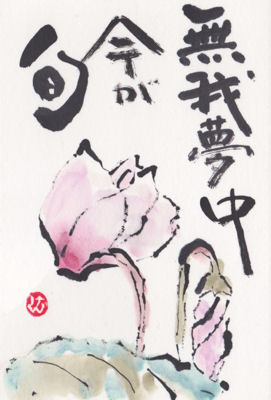 無我夢中
今が
旬